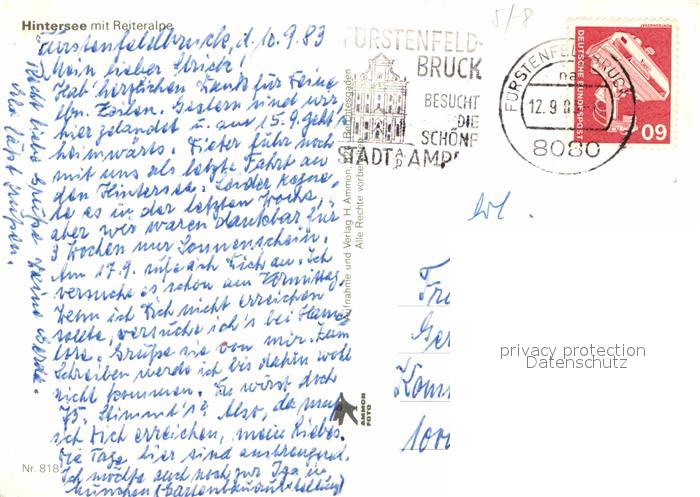 Hintersee mit Reiteralpe
Fürstenfeldbruck, d. 10.9.83
Mein lieber
Hab' herzlichen Dank für Deine
lbn. Zeilen. Gestern sind wir
hier gelandet u. am 15.9. geht's
heimwärts. Dieter fuhr noch
mit uns als letzte Fahrt an
den Hintersee. Leider regne-
te es in der letzten Woche,
aber wir waren dankbar für
3 Wochen nur Sonnenschein.
Am 17.9. rufe ich Dich an. Ich
versuche es schon am Vormittag.
Wenn ich Dich nicht erreichen
sollte, versuche ich's bei
Grüße sie von mir. Zum
Schreiben werde ich bis dahin wohl
nicht kommen. Du wirst doch
75. Stimmt's? Also, da muß
ich Dich erreichen, meine Liebe.
Die Tage hier sind anstrengend.
Ich möchte auch noch zur Iga in
München (Gartenbauausstellung)
Recht liebe Grüße Deine Gerda.
läßt grüßen.
Nr. 818
Aufnahme und Verlag H. Ammon, Berchtesgaden
Alle Rechte vorbe
AMMON
FOTO
FÜRSTENFELD-
BRUCK
BESUCHT
DIE
SCHÖNE
STADT A D AMPER
5/-8
FÜRSTENFELDBRUCK
na
12.9.8
8080
DEUTSCHE BUNDESPOST
60
Fr
Ger
1000
privacy protection
Datenschutz